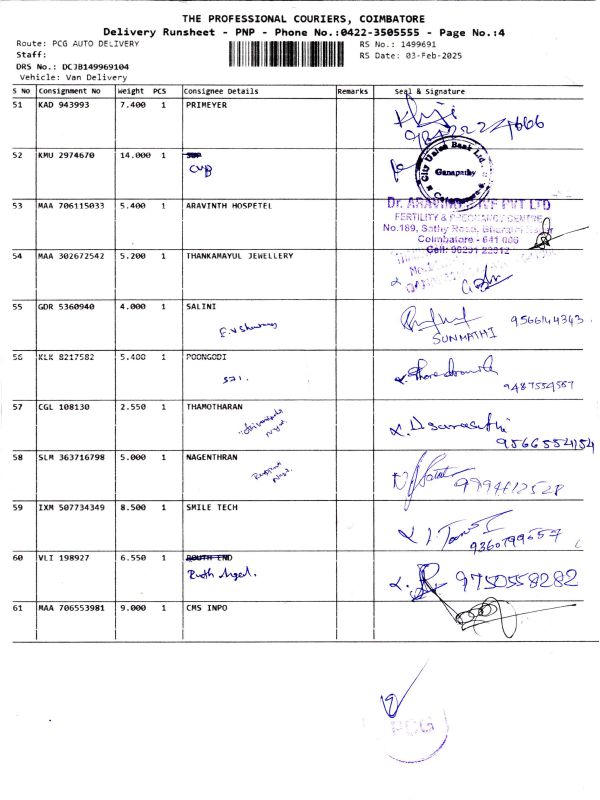 THE PROFESSIONAL COURIERS, COIMBATORE
Delivery Runsheet - PNP - Phone No.:0422-3505555 - Page No.:4
Route: PCG AUTO DELIVERY
RS No.: 1499691
Staff:
RS Date: 03-Feb-2025
DRS No.: DCJB149969104
Vehicle: Van Delivery
S No Consignment No Weight PCS Consignee Details Remarks Seal & Signature
51 KAD 943993 7.400 1 PRIMEYER
52 KMU 2974670 14.000 1
CUB
City Union Bank Ltd.
Ganapathy
53 MAA 706115033 5.400 1 ARAVINTH HOSPETEL
FERTILITY & PREGNANCY CENTRE
No.189, Sathy Road,
Coimbatore - 641 006
54 MAA 302672542 5.200 1 THANKAMAYUL JEWELLERY
55 GDR 5360940 4.000 1 SALINI
9566144343
SUNMATHI
56 KLK 8217582 5.400 1 POONGODI
9487554567
57 CGL 108130 2.550 1 THAMOTHARAN
9566554154
58 SLM 363716798 5.000 1 NAGENTHRAN
9994612528
59 IXM 507734349 8.500 1 SMILE TECH
9360799557
60 VLI 198927 6.550 1 ROUTH END
Ruth Angel.
9750558282
61 MAA 706553981 9.000 1 CMS INPO
PCG